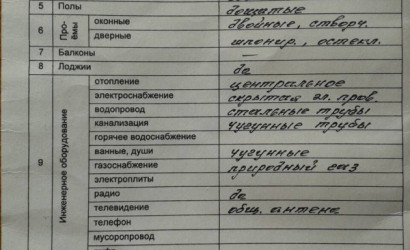 5 Полы дощатые
6 Проёмы оконные двойные, створч.
дверные шпонир., остекл.
7 Балконы
8 Лоджии да
9 Инженерное оборудование
отопление центральное
электроснабжение скрытая эл. пров.
водопровод стальные трубы
канализация чугунные трубы
горячее водоснабжение
ванные, души чугунные
газоснабжение природный газ
электроплиты
радио да
телевидение общ. антена
телефон
мусоропровод